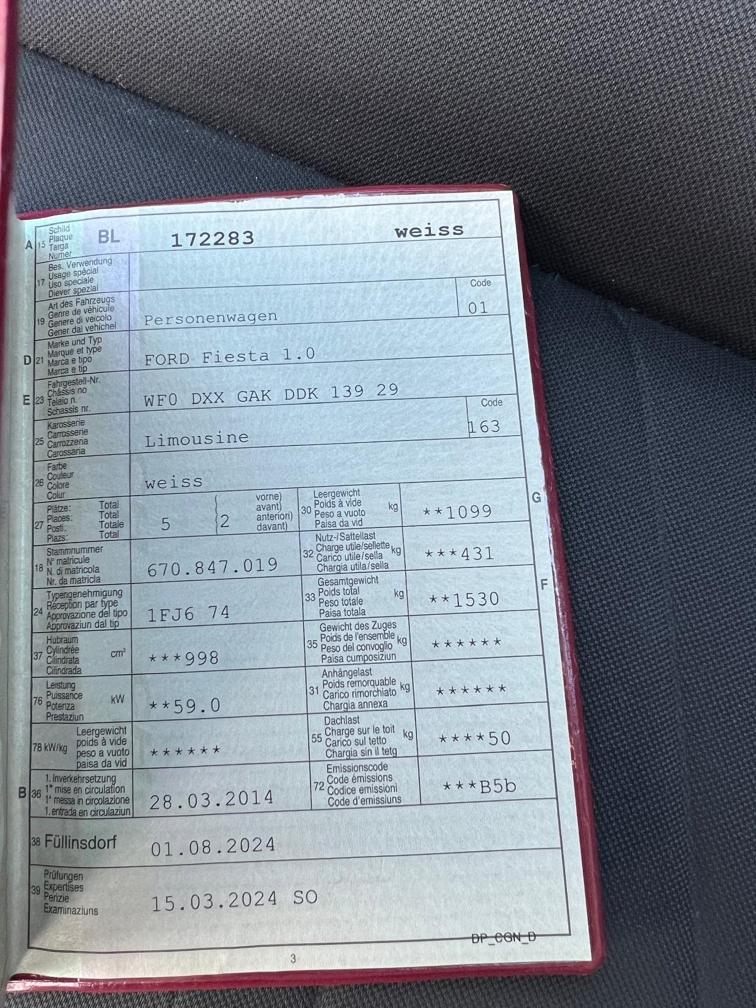 A 15 Schild Plaque Targa Numer BL 172283 weiss
17 Bes. Verwendung Usage spécial Uso speciale Diever spezial
19 Art des Fahrzeugs Genre de véhicule Genere di veicolo Gener dal vehichel Personenwagen Code 01
D 21 Marke und Typ Marque et type Marca e tipo Marca e tip FORD Fiesta 1.0
E 23 Fahrgestell-Nr. Châssis no Telaio n. Schassis nr. WF0 DXX GAK DDK 139 29
25 Karosserie Carrosserie Carrozzeria Carossaria Limousine Code 163
26 Farbe Couleur Colore Colur weiss
27 Plätze: Total Places: Total Posti: Totale Plazs: Total 5 2 vorne) avant) anterion) davant)
30 Leergewicht Poids à vide Peso a vuoto Paisa da vid kg **1099 G
18 Stammnummer N° matricule N. di matricola Nr. da matricla 670.847.019
32 Nutz-/Sattellast Charge utile/sellette Carico utile/sella Chargia utila/sella kg ***431
24 Typengenehmigung Réception par type Approvazione del tipo Approvaziun dal tip 1FJ6 74
33 Gesamtgewicht Poids total Peso totale Paisa totala kg **1530 F
37 Hubraum Cylindrée Cilindrata Cilindrada cm³ ***998
35 Gewicht des Zuges Poids de l'ensemble Peso del convoglio Paisa cumposiziun kg ******
76 Leistung Puissance Potenza Prestaziun kW **59.0
31 Anhängelast Poids remorquable Carico rimorchiato Chargia annexa kg ******
78 kW/kg Leergewicht poids à vide peso a vuoto paisa da vid ******
55 Dachlast Charge sur le toit Carico sul tetto Chargia sin il tetg kg ****50
B 36 1. Inverkehrsetzung 1re mise en circulation 1a messa in circolazione 1. entrada en circulaziun 28.03.2014
72 Emissionscode Code émissions Codice emissioni Code d'emissiuns ***B5b
38 Füllinsdorf 01.08.2024
39 Prüfungen Expertises Perizie Examinaziuns 15.03.2024 SO
DP_CGN_D
3